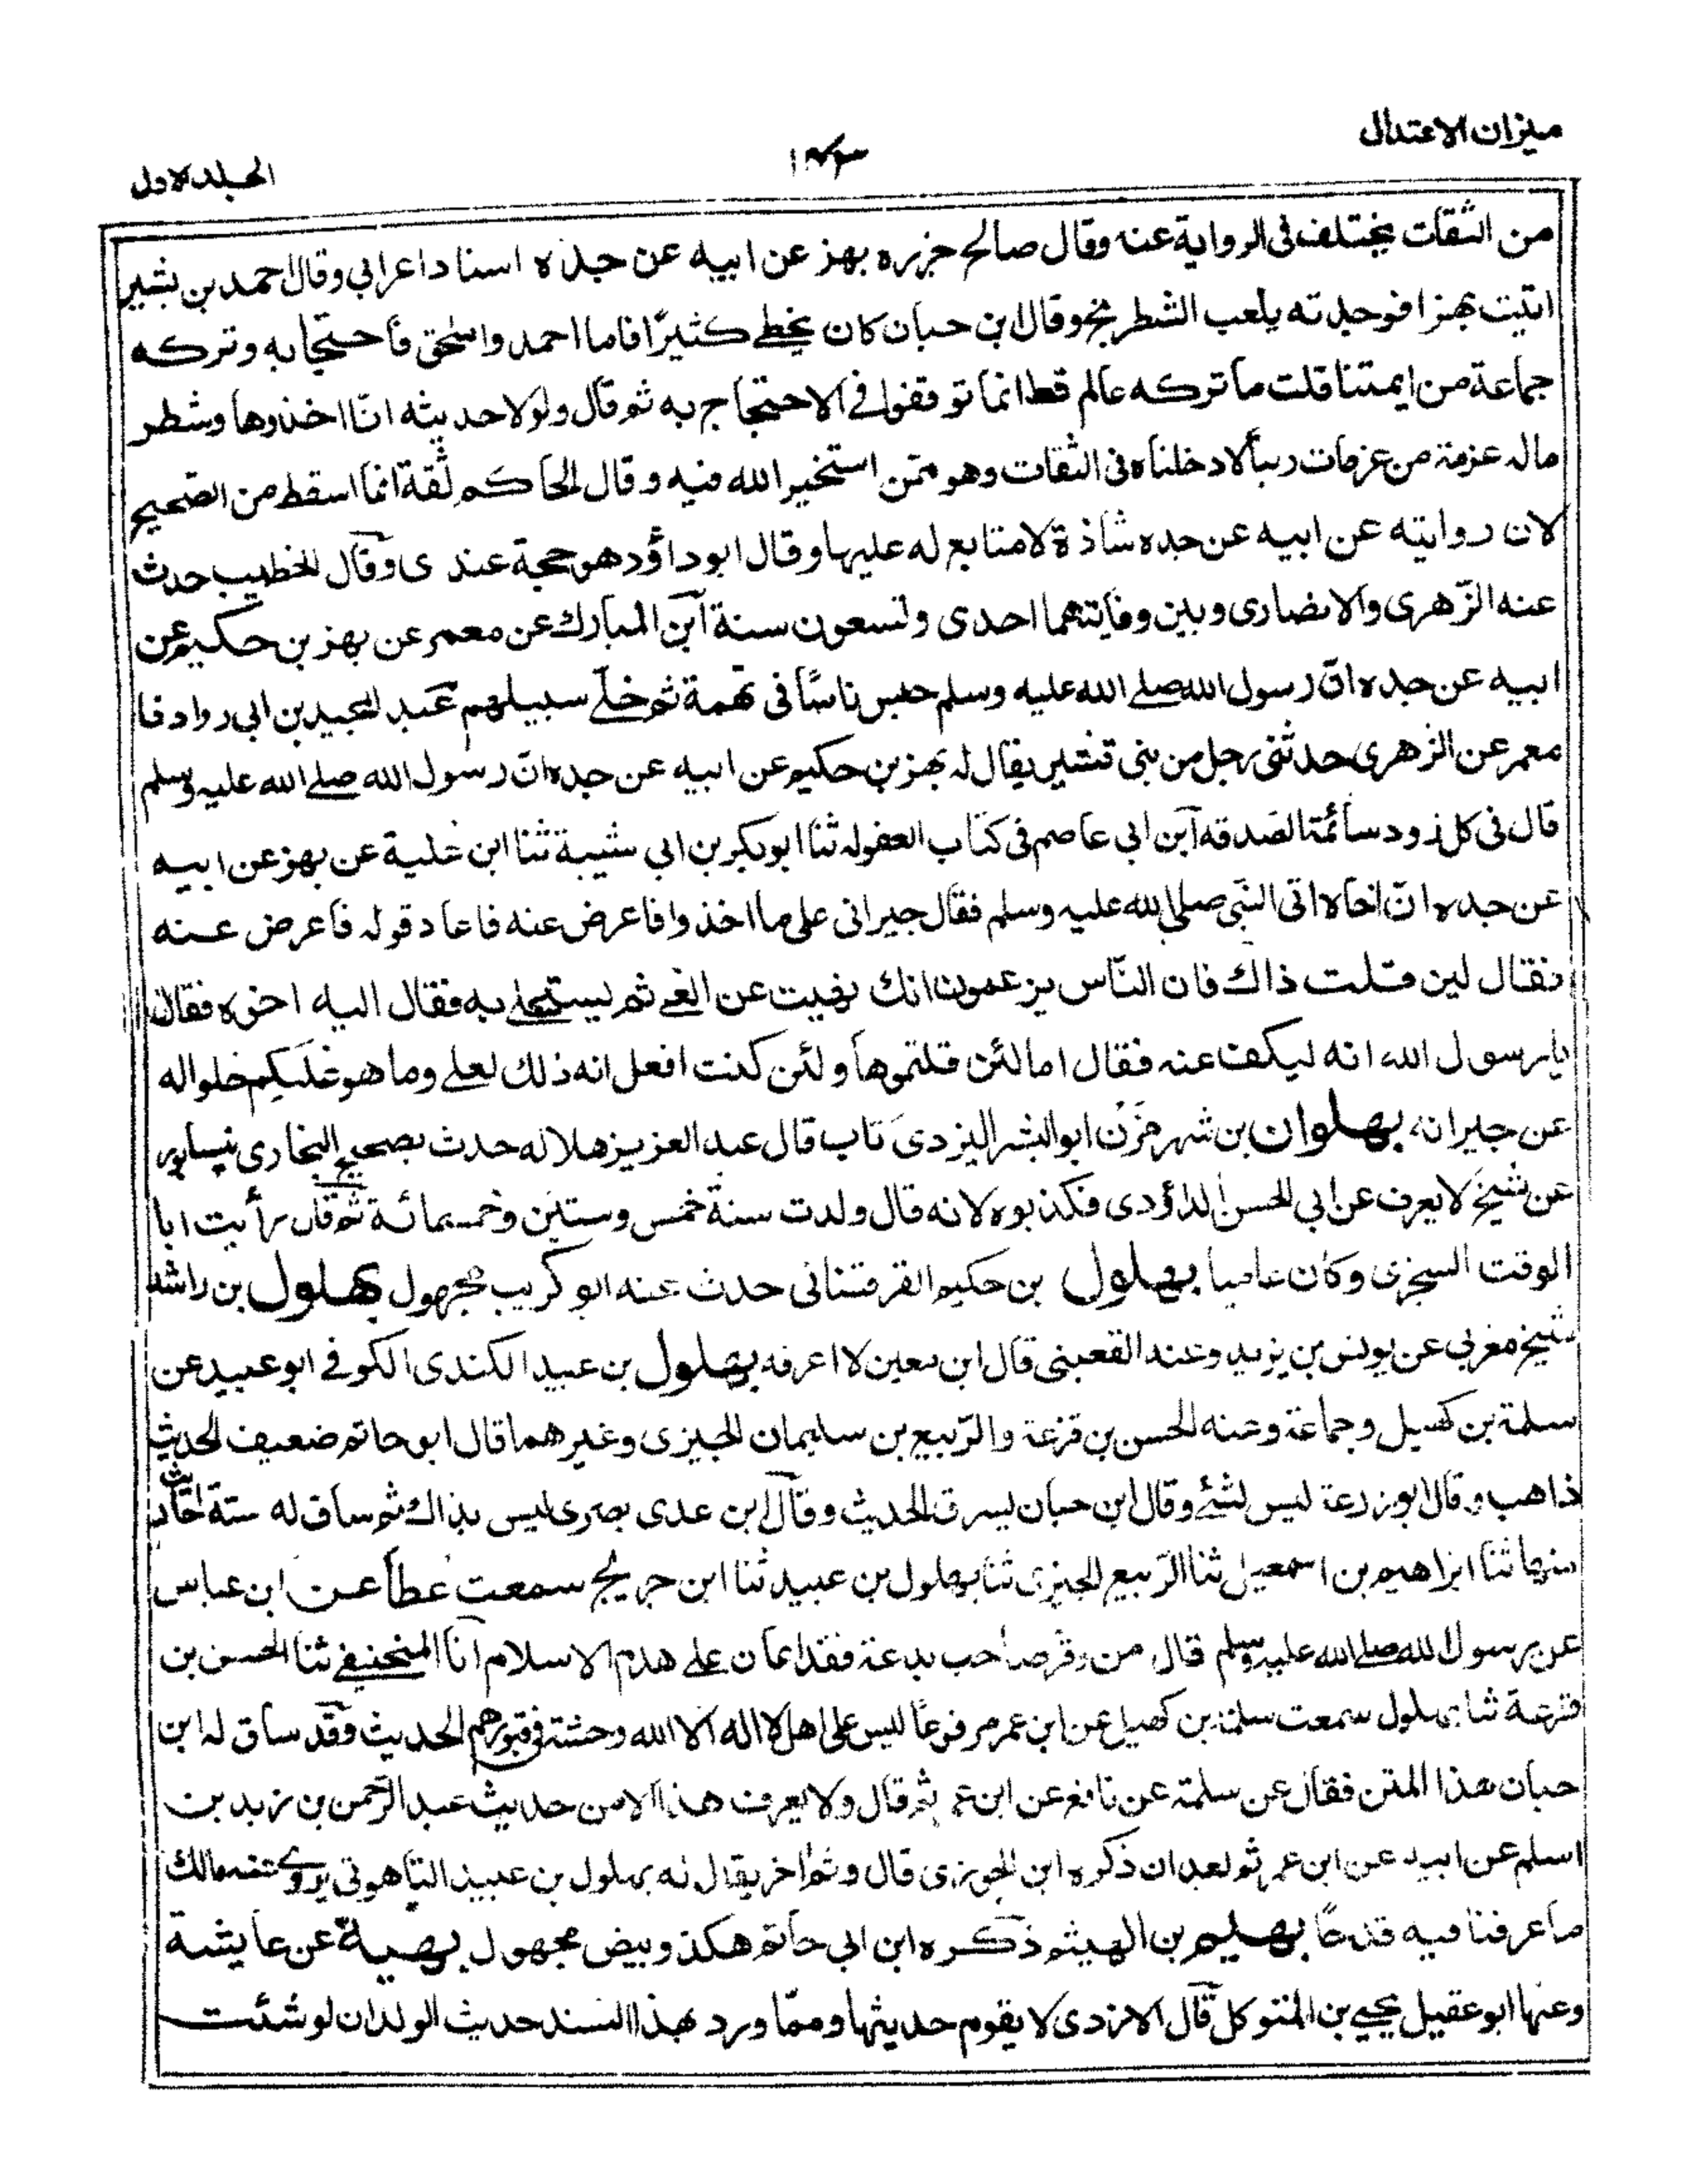 ميزان الاعتدال
١٤٣
الجلد الاول
من الثقات يختلف فى الرواية عنه وقال صالح جزره بهز عن ابيه عن جده اسناد اعرابي وقال احمد بن بشير
اتيت بهزا فوجدته يلعب الشطرنج وقال ابن حبان كان يخطئ كثيرًا فاما احمد واسحٰق فاحتجا به وتركه
جماعة من ايمتنا قلت ما تركه عالم قط انما توقفوا فے الاحتجاج به ثم قال ولولا حديثه انّا اخذوها وشطر
ماله عزمة من عزمات ربنا لادخلناه فى الثقات وهو ممّن استخير الله فيه وقال الحاكم ثقة انما اسقط من الصحيح
لان روايته عن ابيه عن جده شاذة لا متابع له عليها وقال ابوداؤد هو حجة عندى وقال الخطيب حدث
عنه الزّهرى والانصارى وبين وفاتيهما احدى وتسعون سنة ابن المبارك عن معمر عن بهز بن حكيم عن
ابيه عن جده انّ رسول الله صلے الله عليه وسلم حبس ناسًا فى تهمة ثم خلّے سبيلهم عبد المجيد بن ابى رواد نا
معمر عن الزهرى حدثنى رجل من بنى قشير يقال له بهز بن حكيم عن ابيه عن جده انّ رسول الله صلے الله عليه وسلم
قال فى كل ذود سائمة الصدقه ابن ابى عاصم فى كتاب العفوله ثنا ابو بكر بن ابى شيبة ثنا ابن علية عن بهز عن ابيه
عن جده انّ اخاه اتى النّبى صلى الله عليه وسلم فقال جيرانى على ما اخذوا فاعرض عنه فاعاد قوله فاعرض عنه
فقال لين قلت ذاك فان النّاس يزعمون انك نهيت عن الغے ثم يستحلے به فقال اليه اخوه فقال
يا رسول الله انه ليكف عنه فقال اما لئن قلتموها ولئن كنت افعل انه ذلك لعلے وما هو عليكم خلوا له
عن جيرانه بهلوان بن شهر مزن ابو البشر اليزدى تاب قال عبد العزيز هلاله حدث بصحيح البخارى بنيسابور
عن شيخ لا يعرف عن ابي الحسن الداؤدى فكذبوه لانه قال ولدت سنة خمس وستين وخمسمائة ثم قال رأيت ابا
الوقت السجزى وكان عاميا بهلول بن حكيم القرقسانى حدث عنه ابو كريب مجهول بهلول بن راشد
شيخ مغربى عن يونس بن يزيد وعنه القعبنى قال ابن معين لا اعرفه بهلول بن عبيد الكندى الكوفے ابو عبيد عن
سلمة بن كهيل وجماعة وعنه الحسن بن قزعة والرّبيع بن سليمان الجيزى وغيرهما قال ابو حاتم ضعيف الحديث
ذاهب وقال ابو زرعة ليس بشئ وقال ابن حبان يسرق الحديث وقال ابن عدى بصرى ليس بذاك ثم ساق له ستة احاديث
منها ثنا ابراهيم بن اسمعيل ثنا الرّبيع الجيزى ثنا بهلول بن عبيد ثنا ابن جريج سمعت عطاً عن ابن عباس
عن رسول الله صلے الله عليه وسلم قال من وقر صاحب بدعة فقد اعان علے هدم الاسلام انا المنجنيقے ثنا الحسن بن
قزعة ثنا بهلول سمعت سلمة بن كهيل عن ابن عمر مرفوعًا ليس على اهل لا اله الا الله وحشة فى قبورهم الحديث وقد ساق له ابن
حبان هذا المتن فقال عن سلمة عن نافع عن ابن عمر ثم قال ولا يعرف هذا الا من حديث عبد الرّحمن بن زيد بن
اسلم عن ابيه عن ابن عمر ثم بعد ان ذكره ابن الجوزى قال وثم اخر يقال له بهلول بن عبيد التاهوتى يروے عنه مالك
ما عرفنا فيه قدحًا بهليم بن الهيثم ذكره ابن ابى حاتم هكذ وبيض مجهول بهية عن عايشة
وعنها ابو عقيل يحيے بن المتوكل قال الازدى لا يقوم حديثها وممّا ورد بهذا السند حديث الولدان لو شئت